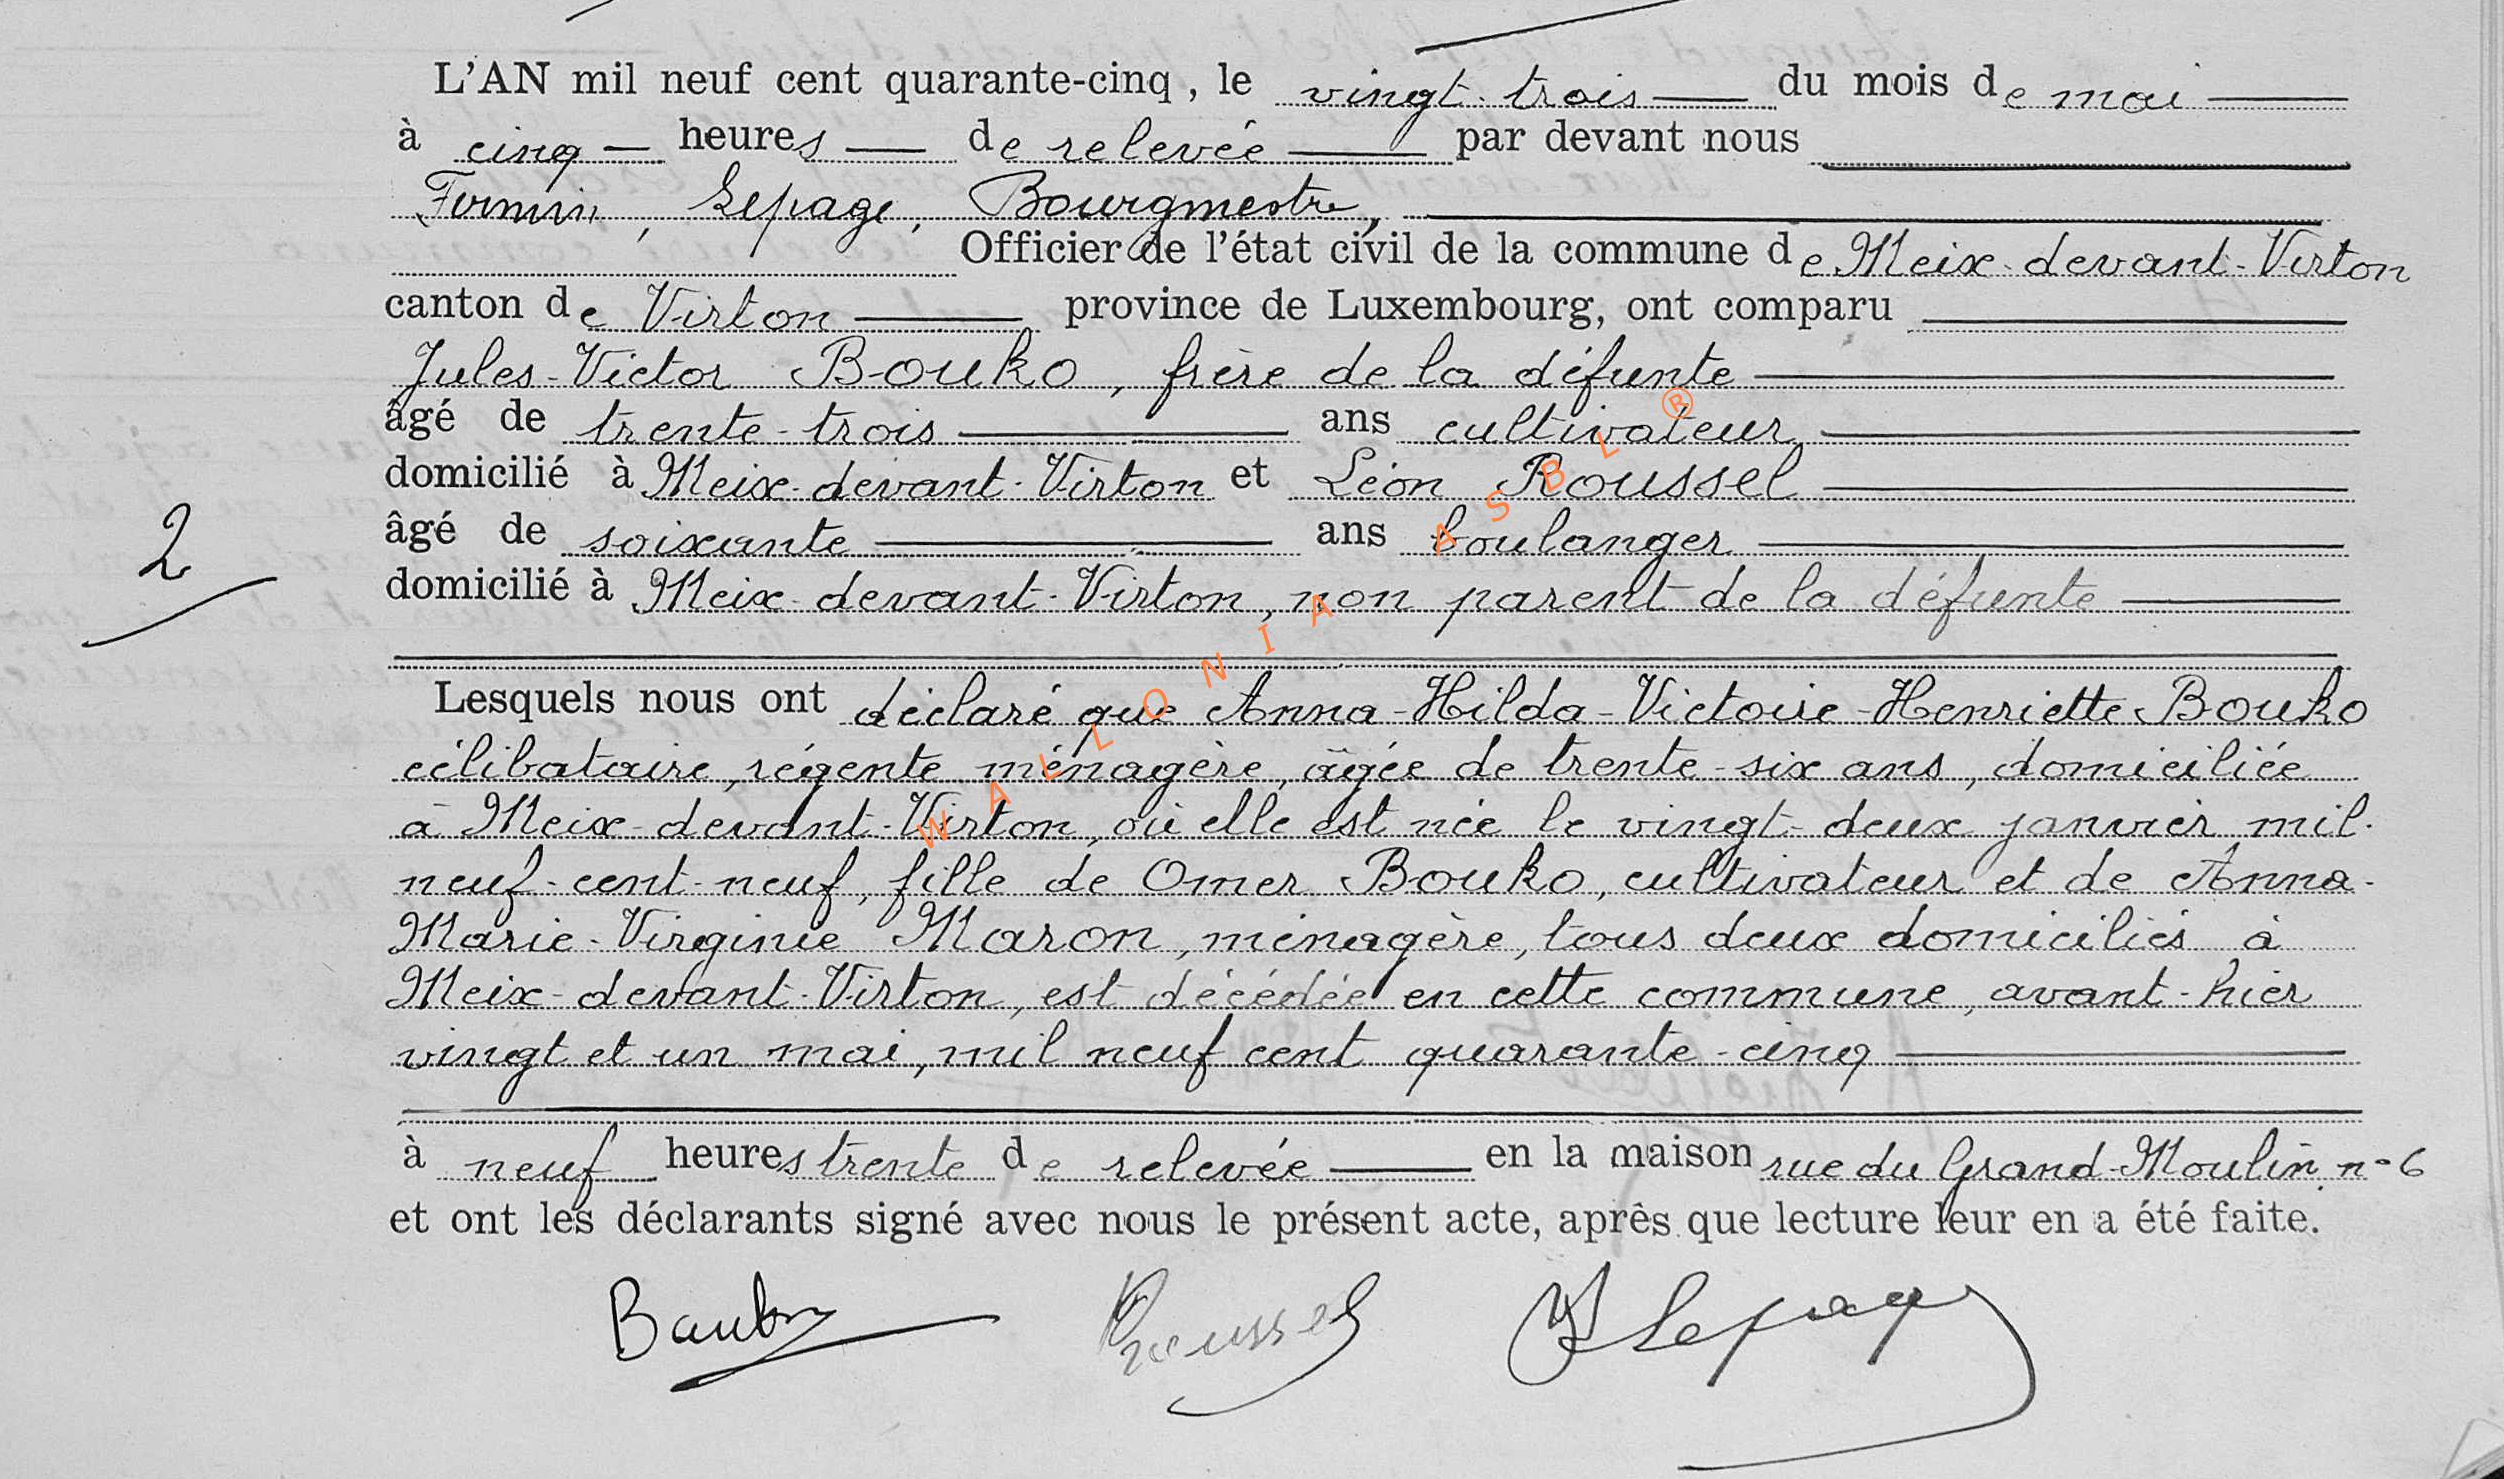 L'AN mil neuf cent quarante-cinq, le vingt-trois du mois de mai
à cinq heures de relevée par devant nous
Firmin, Lepage, Bourgmestre,
Officier de l'état civil de la commune de Meix-devant-Virton
canton de Virton province de Luxembourg, ont comparu
Jules-Victor Bouko, frère de la défunte
âgé de trente-trois ans cultivateur
domicilié à Meix-devant-Virton et Léon Roussel
2
âgé de soixante ans boulanger
domicilié à Meix-devant-Virton, non parent de la défunte
Lesquels nous ont déclaré que Anna-Hilda-Victoire-Henriette Bouko
célibataire, régente ménagère, âgée de trente-six ans, domiciliée
à Meix-devant-Virton, où elle est née le vingt-deux janvier mil-
neuf-cent-neuf, fille de Omer Bouko, cultivateur et de Anna-
Marie-Virginie Maron, ménagère, tous deux domiciliés à
Meix-devant-Virton, est décédée en cette commune, avant-hier
vingt et un mai, mil neuf cent quarante-cinq
à neuf heures trente de relevée en la maison rue du Grand-Moulin, n° 6
et ont les déclarants signé avec nous le présent acte, après que lecture leur en a été faite.
Roussel Lepage
WALLONIA ASBL ®